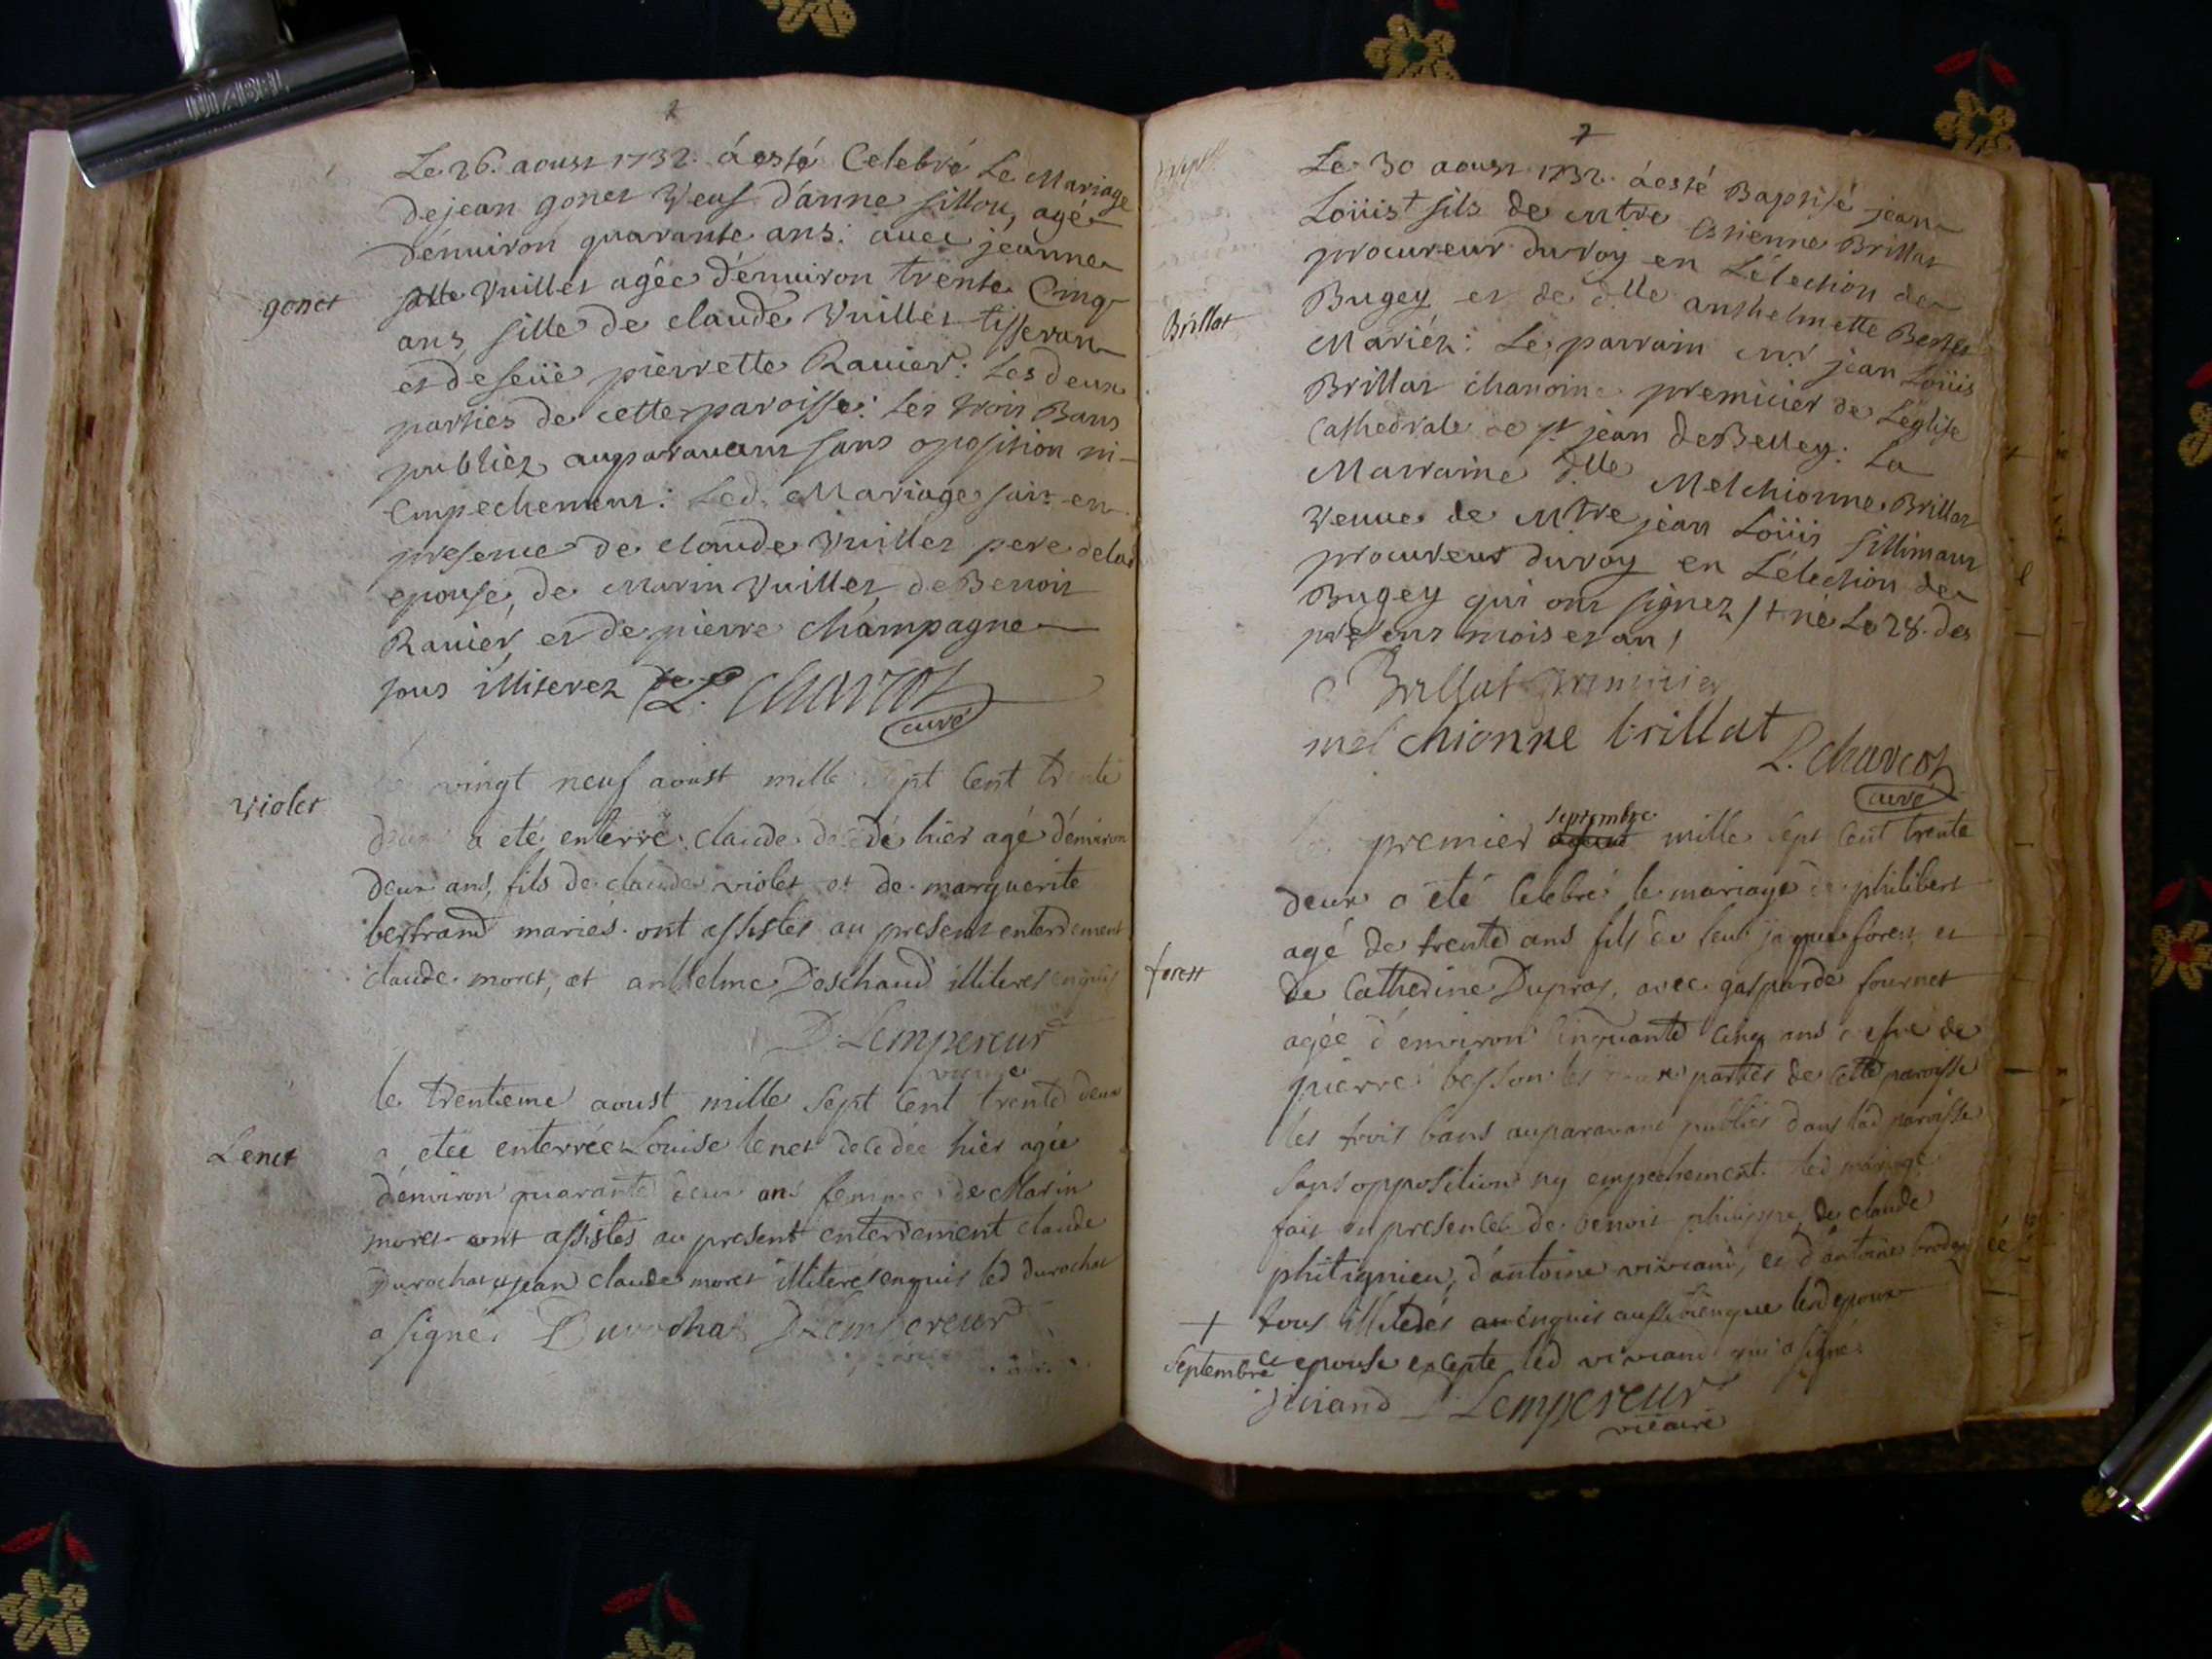 Le 26. aoust 1732. á esté Celebré Le Mariage
de jean gonet Veuf d'anne fillou, agé
d'enuiron quarante ans: auec jeanne
gonet
Vuillet agée d'enuiron trente Cinq
ans fille de claude Vuillet tisseran
et de feüe pierrette Rauier: Les deux
parties de cette paroisse: Les trois Bans
publiez auparauant sans oposition ni
Empechement: Led. Mariage fait en
presence de claude Vuillet pere de la
epouse, de Marin Vuillet, de Benoit
Rauier, et de pierre champagne
tous illiterez L. Charcot
curé
violet
vingt neuf aoust mille sept Cent trente
deux a eté enterré claude decedé hier agé d'environ
deux ans, fils de claude violet et de marguerite
bertrand mariés. ont assistés au present enterrement
claude moret, et anthelme Deschaud illiteres enquis
D. Lempereur
vicaire
le trentieme aoust mille sept Cent trente deux
Lenet
a etée enterrée Louise lenet decedée hier agée
d'environ quarante deux ans femme de Marin
moret ont assistés au present enterrement claude
Durochat et jean claude moret illiterés enquis led durochat
a signé. Durochat D. Lempereur
Le 30 aoust 1732. á esté Baptisé jean
Loüis + fils de Mtre Estienne Brillat
procureur du roy en L'élection de
Bugey et de dlle anthelmette Bertet
Brillat
Mariéz: Le parrain Mr jean Loüis
Brillat chanoine premicier de L'eglise
Cathedrale de St jean de Belley: La
Marraine dlle Melchionne Brillat
Veuue de Mtre jean Loüis fillimant
procureur du roy en L'élection de
Bugey qui ont signez / + né Le 28. des
present mois et an /
Brillat premicier
melchionne brillat L. Charcot
curé
septembre
premier mille sept Cent trente
deux a eté Celebré le mariage de philibert
agé de trente ans fils de feu jaques forest et
forest
de Catherine Dupras, avec gasparde fournet
agée d'environ Cinquante Cinq ans vefve de
pierre besson les parties de cette paroisse
les trois bans auparavant publiés dans lad paroisse
sans opposition ny empechement. led mariage
fait en presence de benoit philippe, de claude
phitignieu, d'antoine viviand, et d'antoine
+ tous illiterés enquis aussi bien que led epoux
Septembre et epouse excepté led viviand qui a signé.
viviand D. Lempereur
vicaire